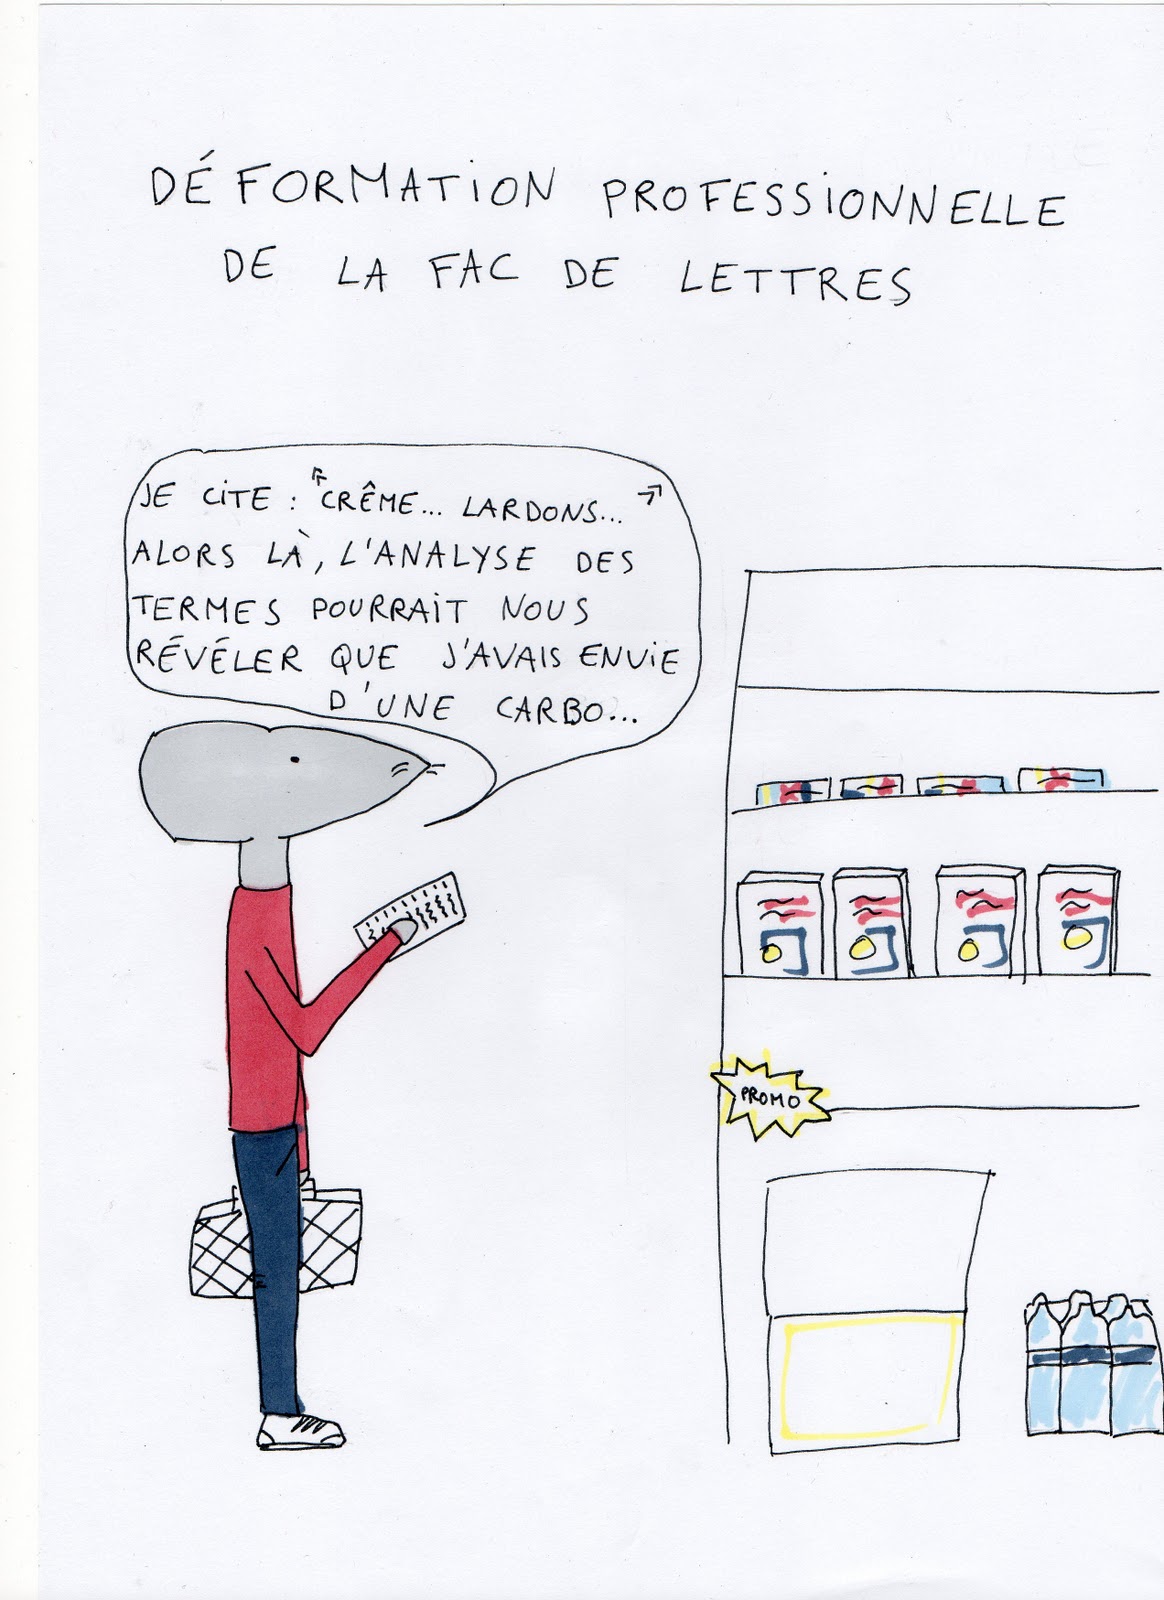 DÉFORMATION PROFESSIONNELLE
DE LA FAC DE LETTRES
JE CITE : "CRÊME... LARDONS..."
ALORS LÀ, L'ANALYSE DES
TERMES POURRAIT NOUS
RÉVÉLER QUE J'AVAIS ENVIE
D'UNE CARBO...
PROMO